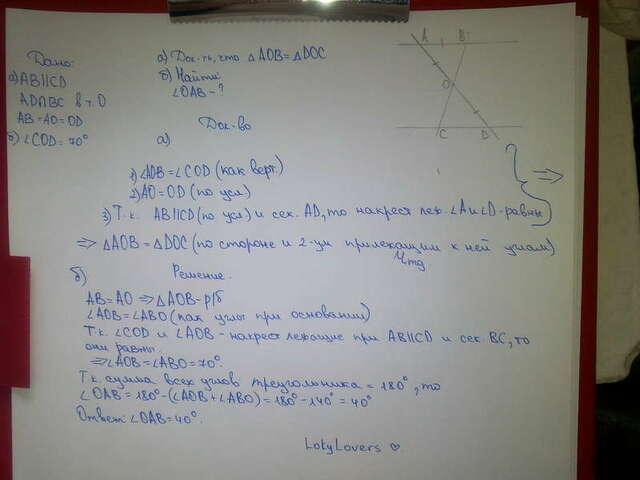 Дано:
а) AB||CD
AD∩BC в т. O
AB=AO=OD
б) ∠COD=70°
а) Док-ть, что △AOB=△DOC
б) Найти:
∠OAB-?
A B
O
C D
Док-во
а)
1) ∠AOB=∠COD (как верт.)
2) AO=OD (по усл)
3) Т.к. AB||CD (по усл) и сек. AD, то накрест леж. ∠A и ∠D-равны
=>
=> △AOB=△DOC (по стороне и 2-ум прилежащим к ней углам)
чтд
б) Решение.
AB=AO => △AOB-р/б
∠AOB=∠ABO (как углы при основании)
Т.к. ∠COD и ∠AOB-накрест лежащие при AB||CD и сек. BC, то
они равны.
=> ∠AOB=∠ABO=70°.
Т.к. сумма всех углов треугольника = 180°, то
∠OAB=180°-(∠AOB+∠ABO)=180°-140°=40°
Ответ: ∠OAB=40°.
LokyLovers ♡